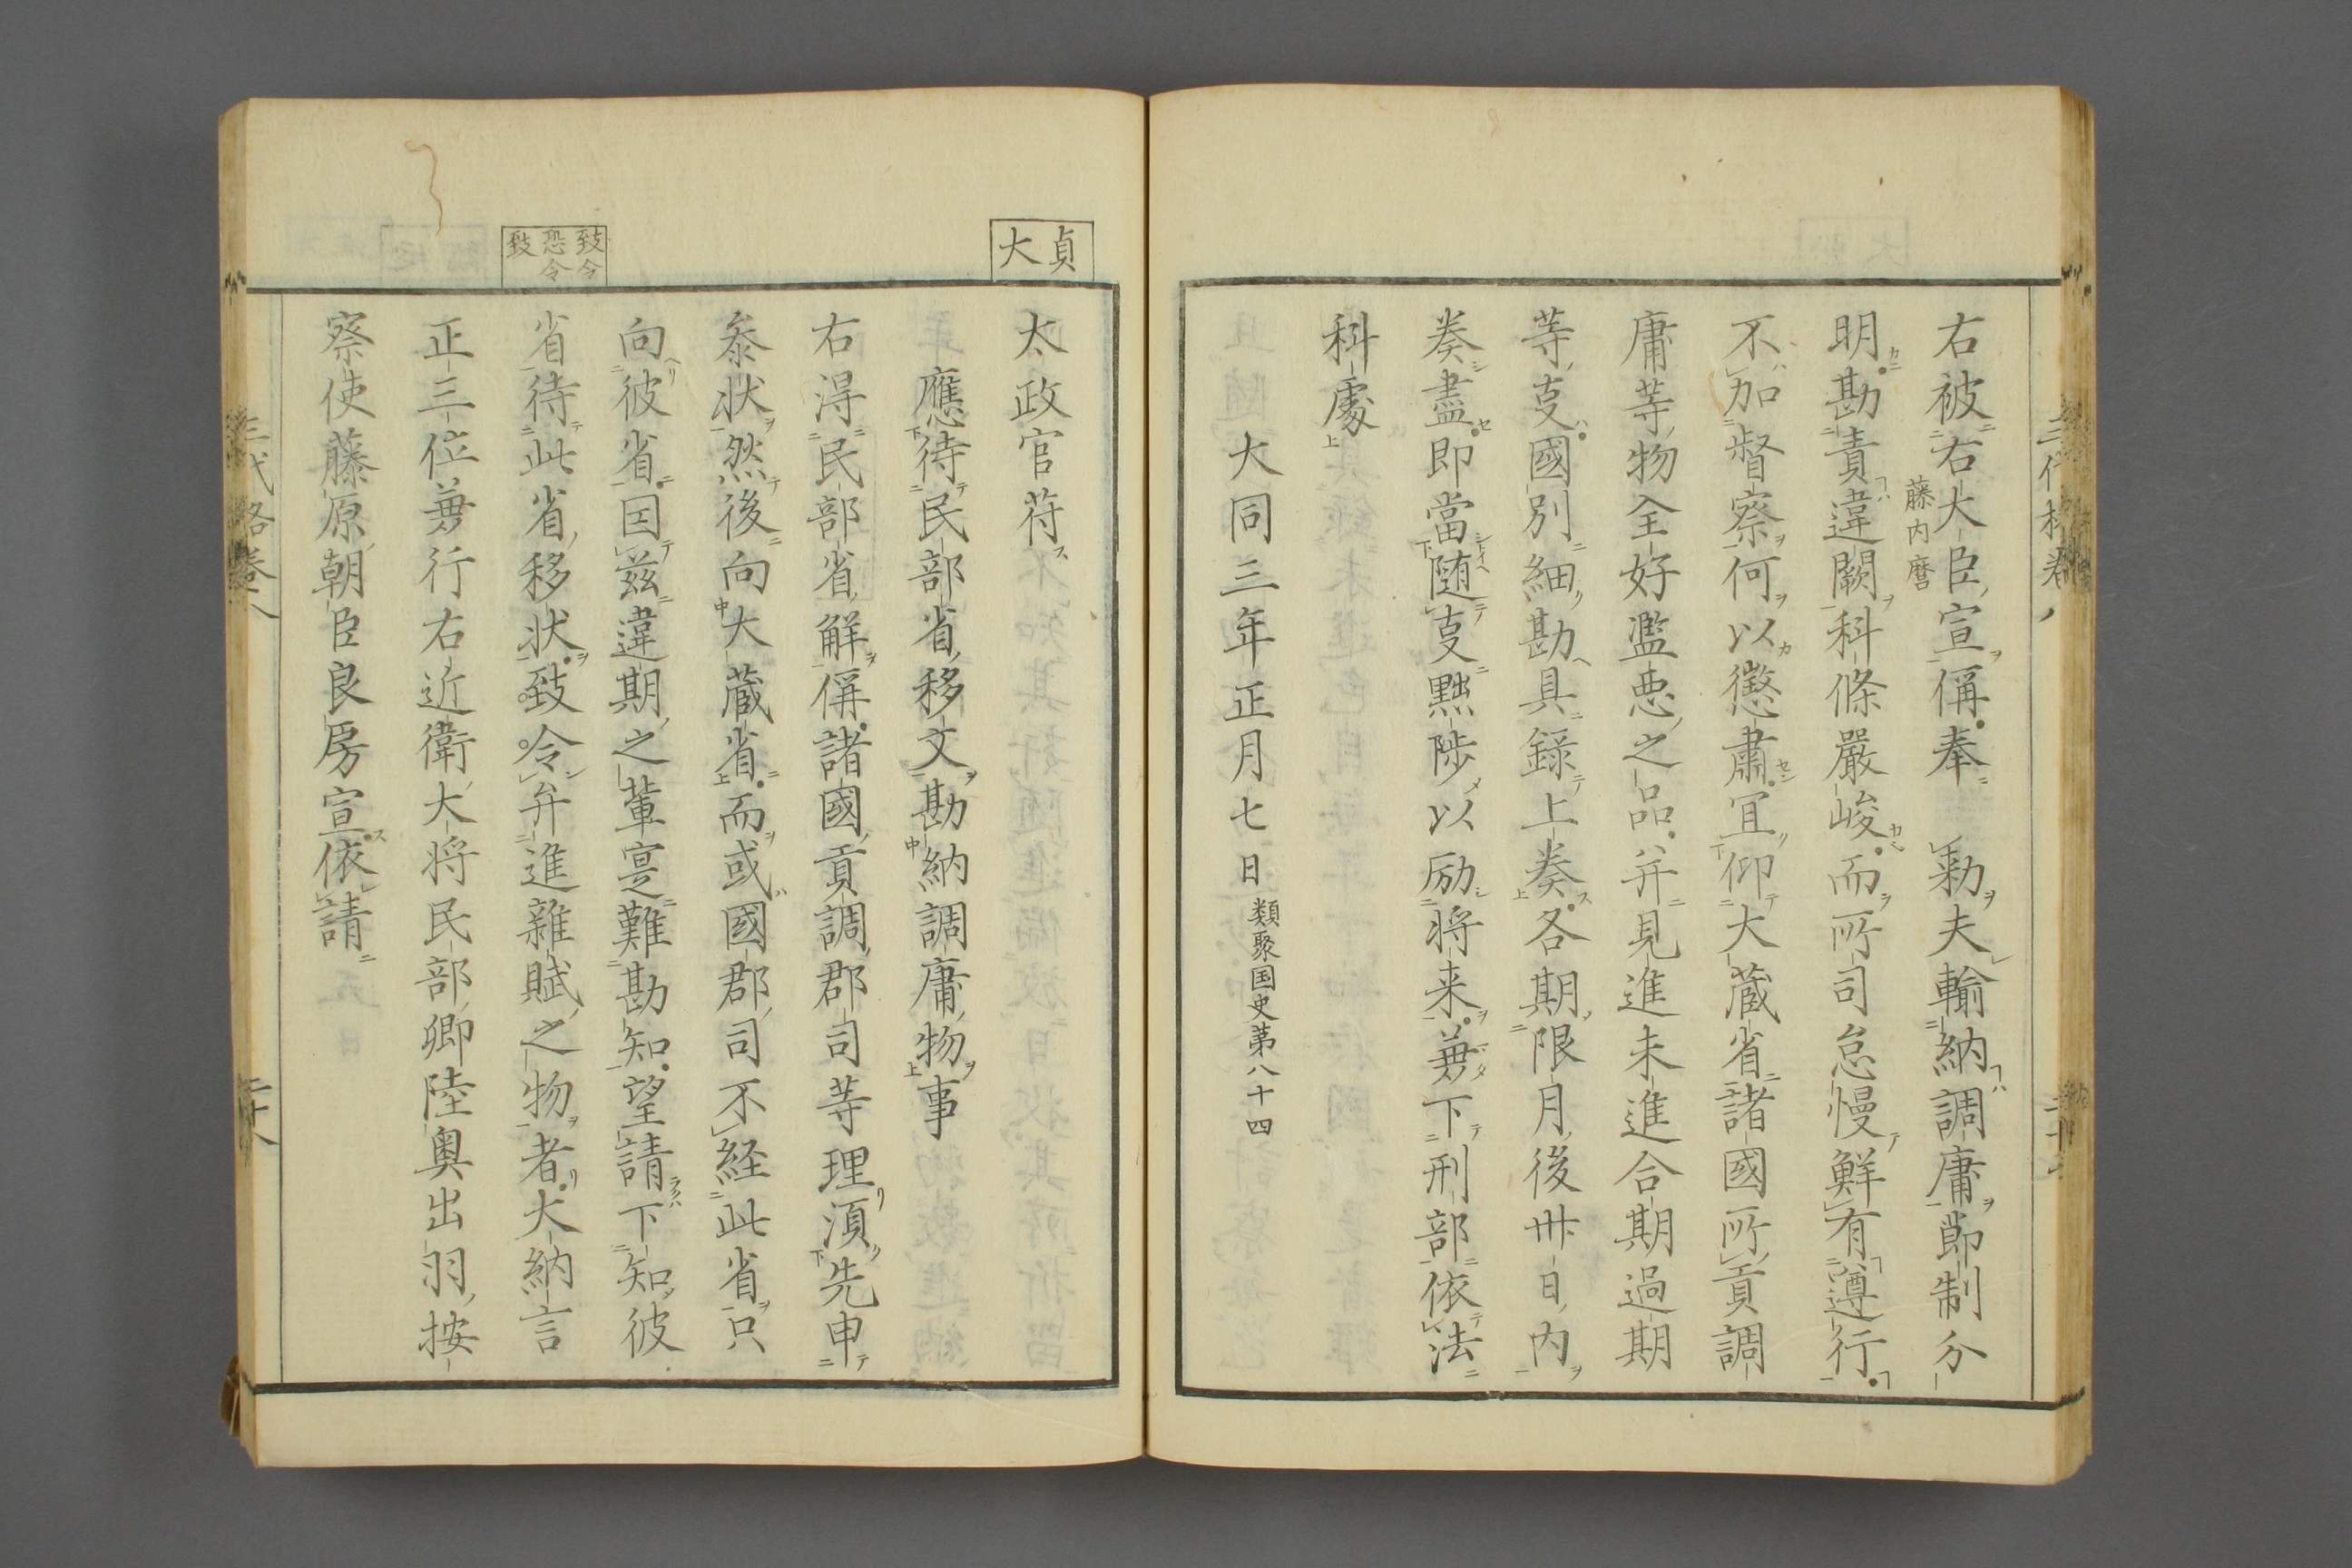 右被右大臣宣偁奉　勅夫輸納調庸節制分
藤内麿
明勘責違闕科條嚴峻而所司怠慢鮮有遵行
不加督察何以懲肅宜仰大蔵省諸國所貢調
庸等物全好濫悪之品并見進未進合期過期
等㕝國別細勘具録上奏各期限月後卅日内
奏盡即當随㕝黜陟以励将来兼下刑部依法
科處
大同三年正月七日類聚国史第八十四
貞
大
太政官符
應待民部省移文勘納調庸物事
右得民部省解偁諸國貢調郡司等理湏先申
叅状然後向大蔵省而或國郡司不経此省只
致令
恐令
致
向彼省因茲違期之輩寔難勘知望請下知彼
省待此省移状致令弁進雜賦之物者大納言
正三位兼行右近衛大将民部卿陸奥出羽按
察使藤原朝臣良房宣依請
三代格巻八